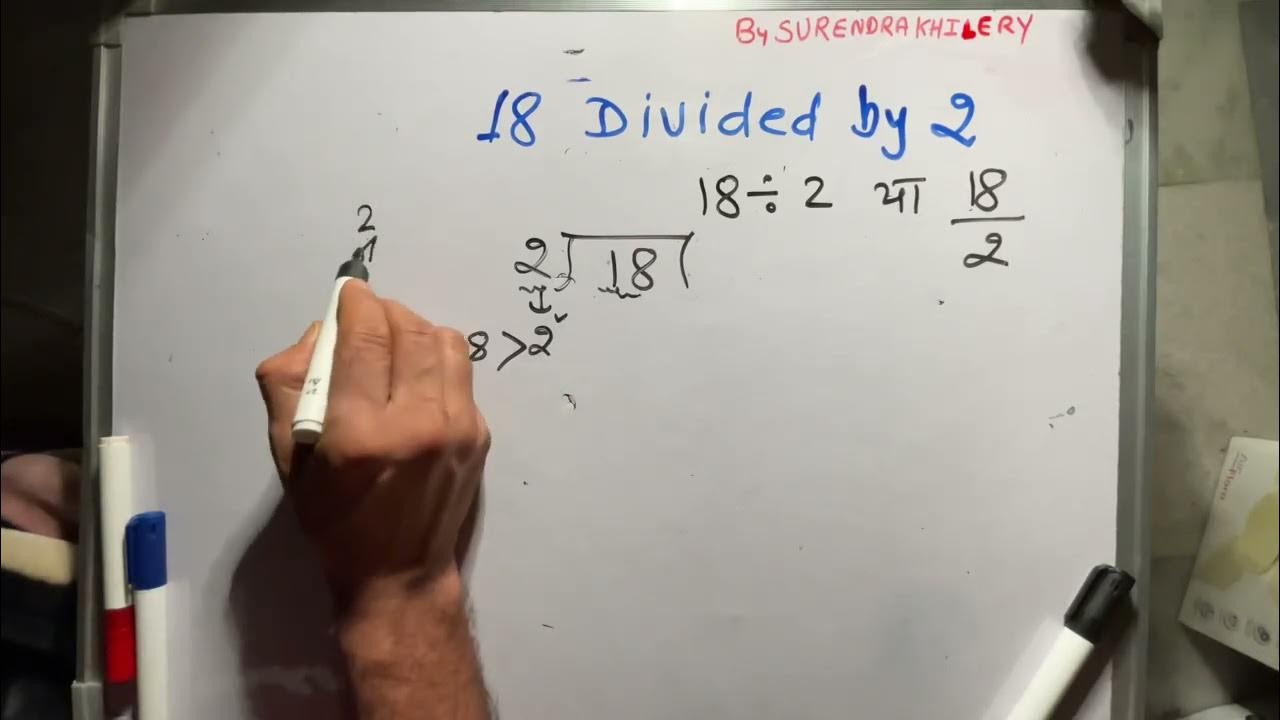 By SURENDRA KHILERY
18 Divided by 2
18 ÷ 2 या 18/2
2
4
2 18
8 > 2